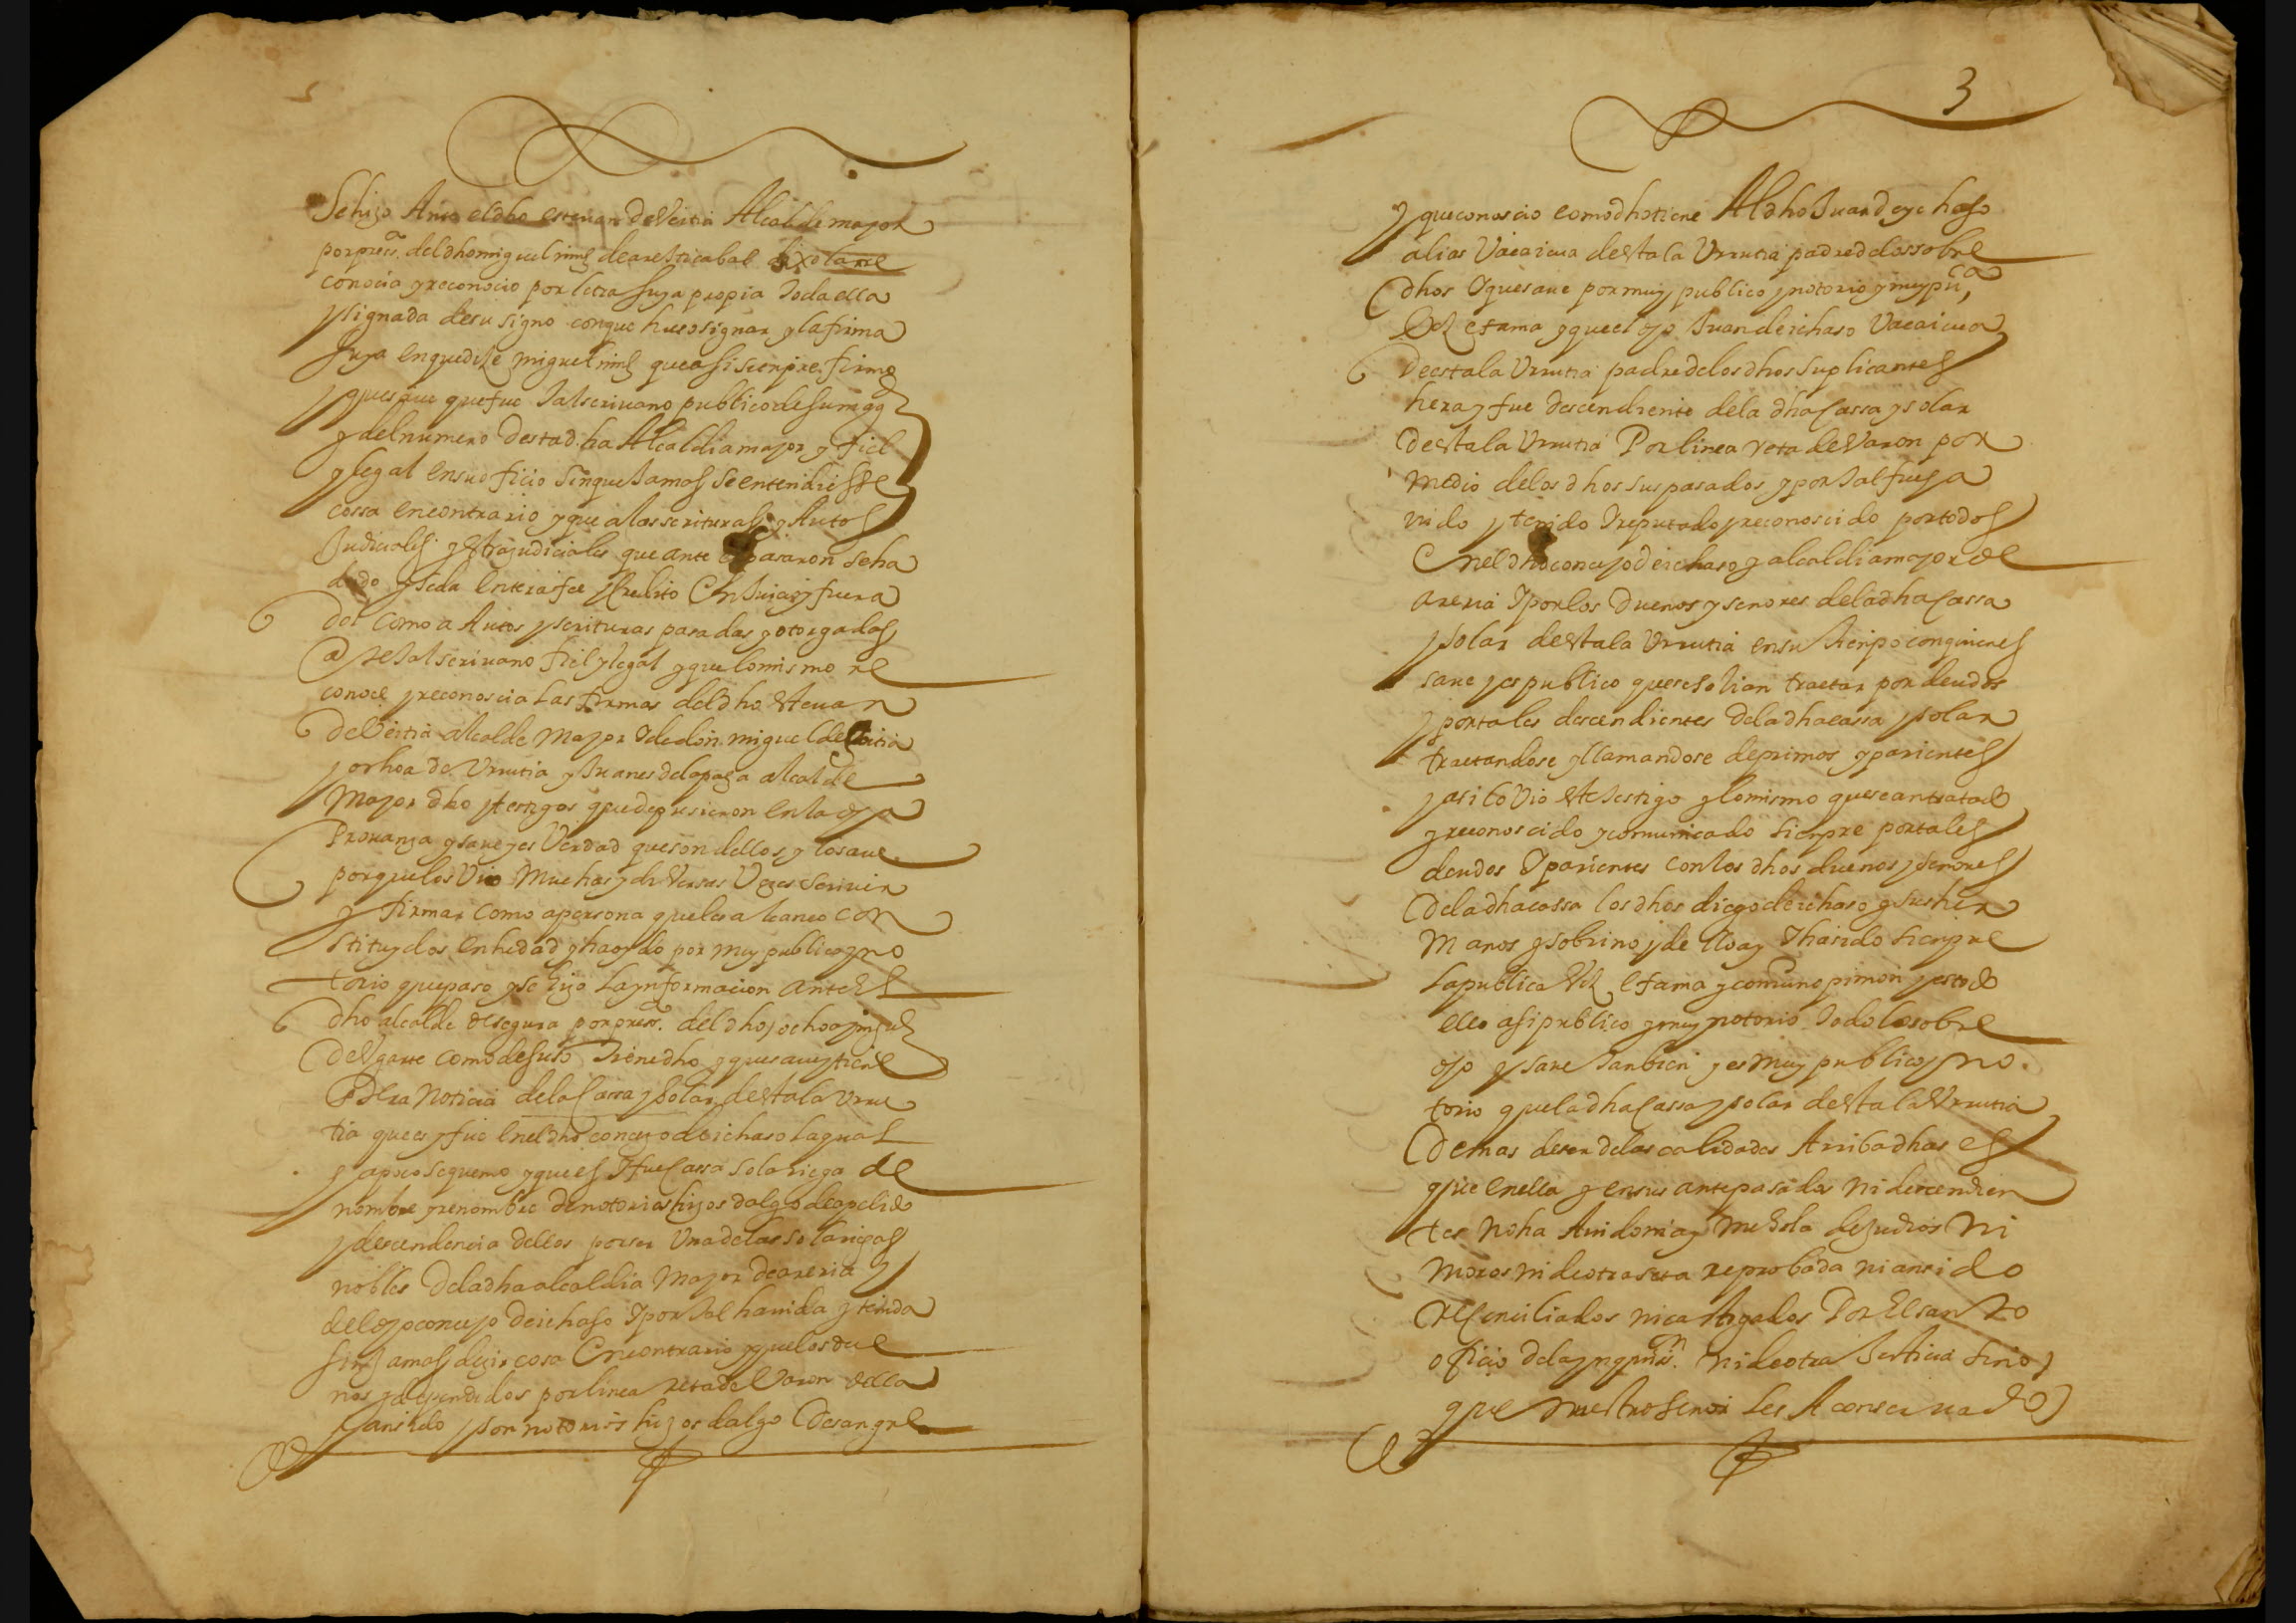 Se hizo Ante el dho esteuan de Veitia Alcalde mayor
por press.ª del dho miguel nūs de aresticabal dixo la re
conocia y reconocio por letra suya propia Toda ella
y signada de su signo con que huso signar y la firma
suya en que dize miguel nūs que asi sienpre firmo
y que saue que fue Tal scriuano publico de su mag.d
y del numero desta d.ha Alcaldia mayor y fiel
y legal en su oficio sin que Jamas se entendiesse
cossa en contrario y que a las scrituras y Autos
Judiciales y estrajudiciales que ante el pasaron se ha
dado y se da entera fee y credito En Juicio y fuera
del como a Autos y scrituras pasadas y otorgadas
ante Tal scriuano fiel y legal y que lo mismo re
conoce y reconoscia las firmas del dho esteuan
de Veitia alcalde mayor y de don miguel de Veitia
y ochoa de Vrrutia y Juanes de la paza alcalde
mayor dho y testigos que depusieron en la dha
Prouanza y saue y es Verdad que son dellos y lo saue
porque los Vio muchas y diVersas Vezes scriuir
y firmar como a persona que les alcanco con
stituydos en hedad y ha oydo por muy publico y no
torio que paso y se hizo la ynformacion ante El
dho alcalde de segura por press.ª del dho ochoa yniguez
de Vgarte como de suso Tiene dho y que saue y tiene
Entera noticia de la Cassa y solar de estala vrru
tia que es y fue en el dho concejo de ichaso la qual
y a poco se quemo y que es y fue Cassa solariega de
nombre y renombre de notorios hijos dalgo de apelido
y descendencia dellos por ser Vna de las solariegas
nobles de la dha alcaldia mayor de areria y
del dho concejo de ichaso y por Tal hauida y tenida
sin Jamas dezir cosa En contrario y que los due
nos y dependidos por linea reta de Varon della
han sido y son notorios hijos dalgo de sangre
3
y que conoscio como dho tiene Al dho Juan de ychaso
alias Vacaicua de estala Vrrutia padre de los sobre
dhos y que saue por muy publico y notorio y muy pu.ca
Voz e fama y que el dho Juan de ichaso Vacaicua
de estala Vrrutia padre de los dhos suplicantes
hera y fue descendiente de la dha Cassa y solar
de estala Vrrutia Por linea reta de Varon por
medio de los dhos sus pasados y por Tal fue ha
uido y tenido y reputado y reconoscido por todos
En el dho concejo de ichaso y alcaldia mayor de
areria y por los Duenos y senores de la dha Cassa
y solar de estala Vrrutia en su tienpo con quienes
saue y es publico que se solian tractar por deudos
y por tales descendientes de la dha cassa y solar
tractandose y llamandose de primos y parientes
y asi lo Vio este Testigo y lo mismo que se an tratado
y reconoscido y comunicado sienpre por tales
deudos y parientes con los dhos duenos y senores
de la dha cassa los dhos diego de ichaso y sus her
manos y sobrino y de llo ay y ha sido sienpre
la publica Voz e fama y comun opinion y es todo
ello asi publico y muy notorio Todo lo sobre
dho y saue Tanbien y es muy publico y no
torio que la dha Cassa y solar de estala Vrrutia
Demas de ser de las calidades Arriba dhas es
que en ella y en sus antepasados ni descendien
tes no ha Auido ni ay mezcla de judios ni
moros ni de otra seta reprobada ni an sido
reconciliados ni castigados Por El santo
oficio de la ynqui.on ni de otra Justicia sino
que nuestro senor les A conseruado